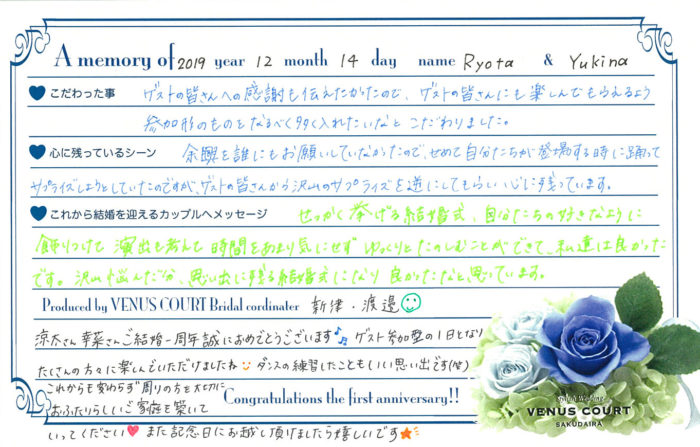 A memory of 2019 year 12 month 14 day name Ryota & Yukina
こだわった事 ゲストの皆さんへの感謝も伝えたかったので、ゲストの皆さんにも楽しんでもらえるよう
参加形のものをなるべく多く入れたいなと こだわりました。
心に残っているシーン 余興を誰にもお願いしていなかったので、せめて自分たちが登場する時に踊って
サプライズしようとしていたのですが、ゲストの皆さんから沢山のサプライズを逆にしてもらい心に残っています。
これから結婚を迎えるカップルへメッセージ せっかく挙げる結婚式、自分たちの好きなように
飾りつけて 演出も考えて 時間をあまり気にせず ゆっくりとたのしむことができて、私達は良かった
です。沢山悩んだ分、思い出に残る結婚式になり 良かったなと思っています。
Produced by VENUS COURT Bridal cordinater 新津・渡邉
涼太さん 幸菜さんご結婚一周年誠におめでとうございます♪ ゲスト参加型の1日となり
たくさんの方々に楽しんでいただけましたね ダンスの練習したこともいい思い出です(笑)
これからも変わらず周りの方を大切に
おふたりらしいご家庭を築いて
Congratulations the first anniversary!!
いってください♥ また記念日にお越し頂けましたら嬉しいです★
VENUS COURT
SAKUDAIRA